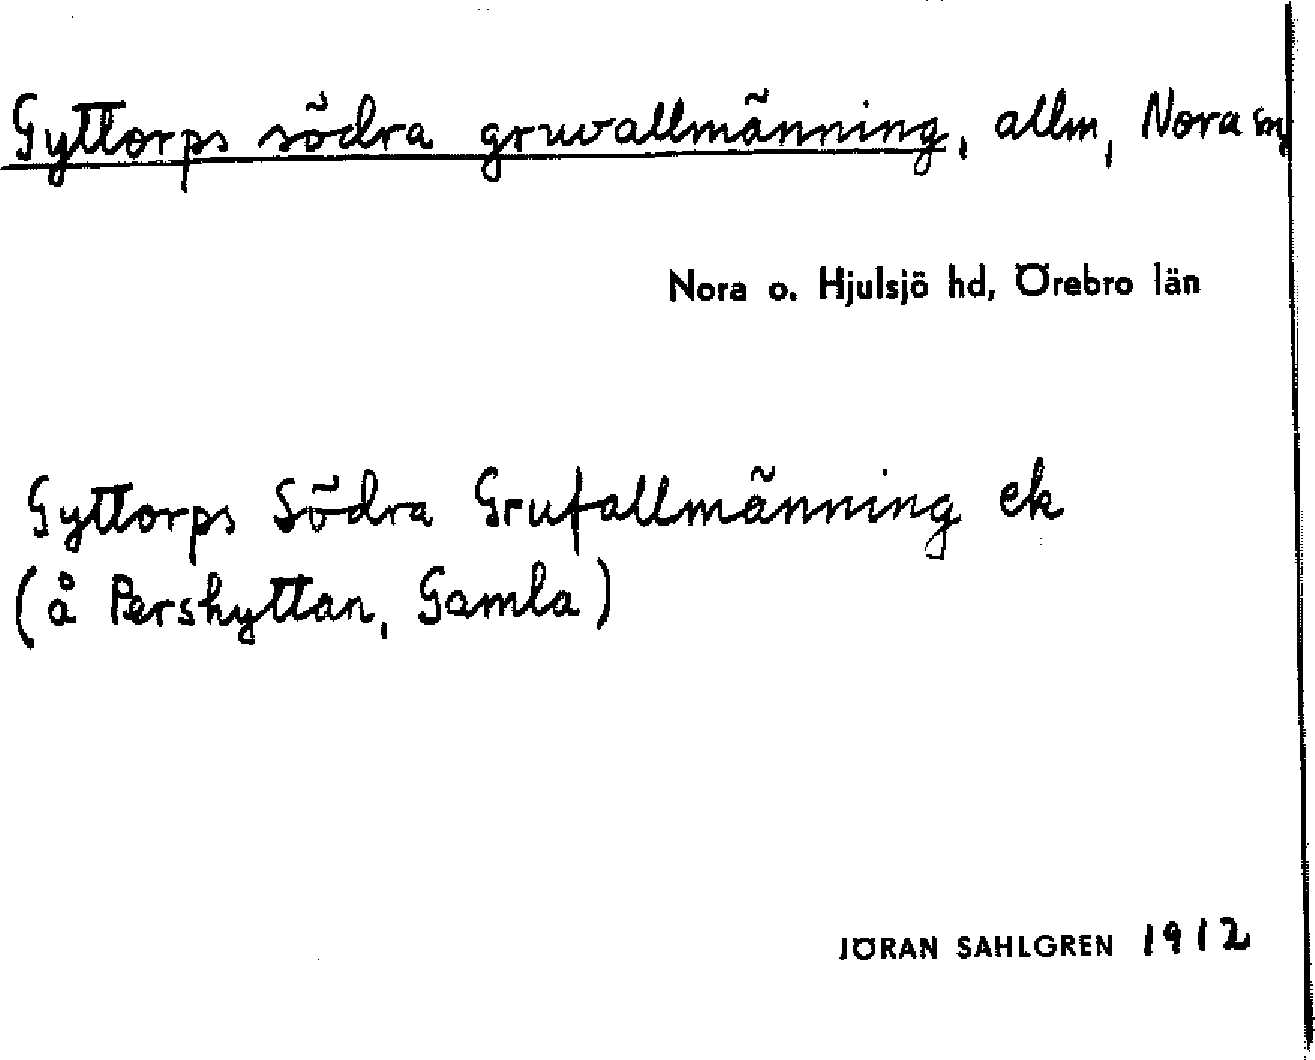 Gyttorps södra gruvallmänning, allm, Nora sn
Nora o. Hjulsjö hd, Örebro län
Gyttorps Södra Grufallmänning ek
(å Pershyttan, Gamla)
JÖRAN SAHLGREN 1912